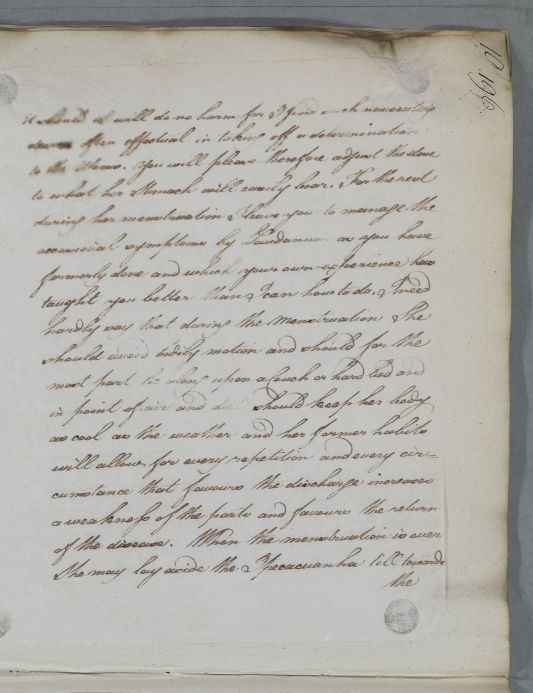 10 196
it should it will do no harm for I find such nauseating
doses often effectual in taking off a determination
to the Uterus. You will please therefore adjust the dose
to what her Stomach will easily bear. For the rest
during her menstruation I leave you to manage the
accessorial symptoms by Laudanum as you have
formerly done and which your own experience has
taught you better than I can how to do. I need
hardly say that during the Menstruation She
should avoid bodily motion and should for the
most part lie along upon a Couch or hard bed and
in point of air and diet should keep her body
as cool as the weather and her former habits
will allow, for every repetition and every cir=
cumstance that favours the discharge increases
a weakness of the parts and favours the return
of the disease. When the menstruation is over
She may lay aside the Ipecacuanha till towards
the